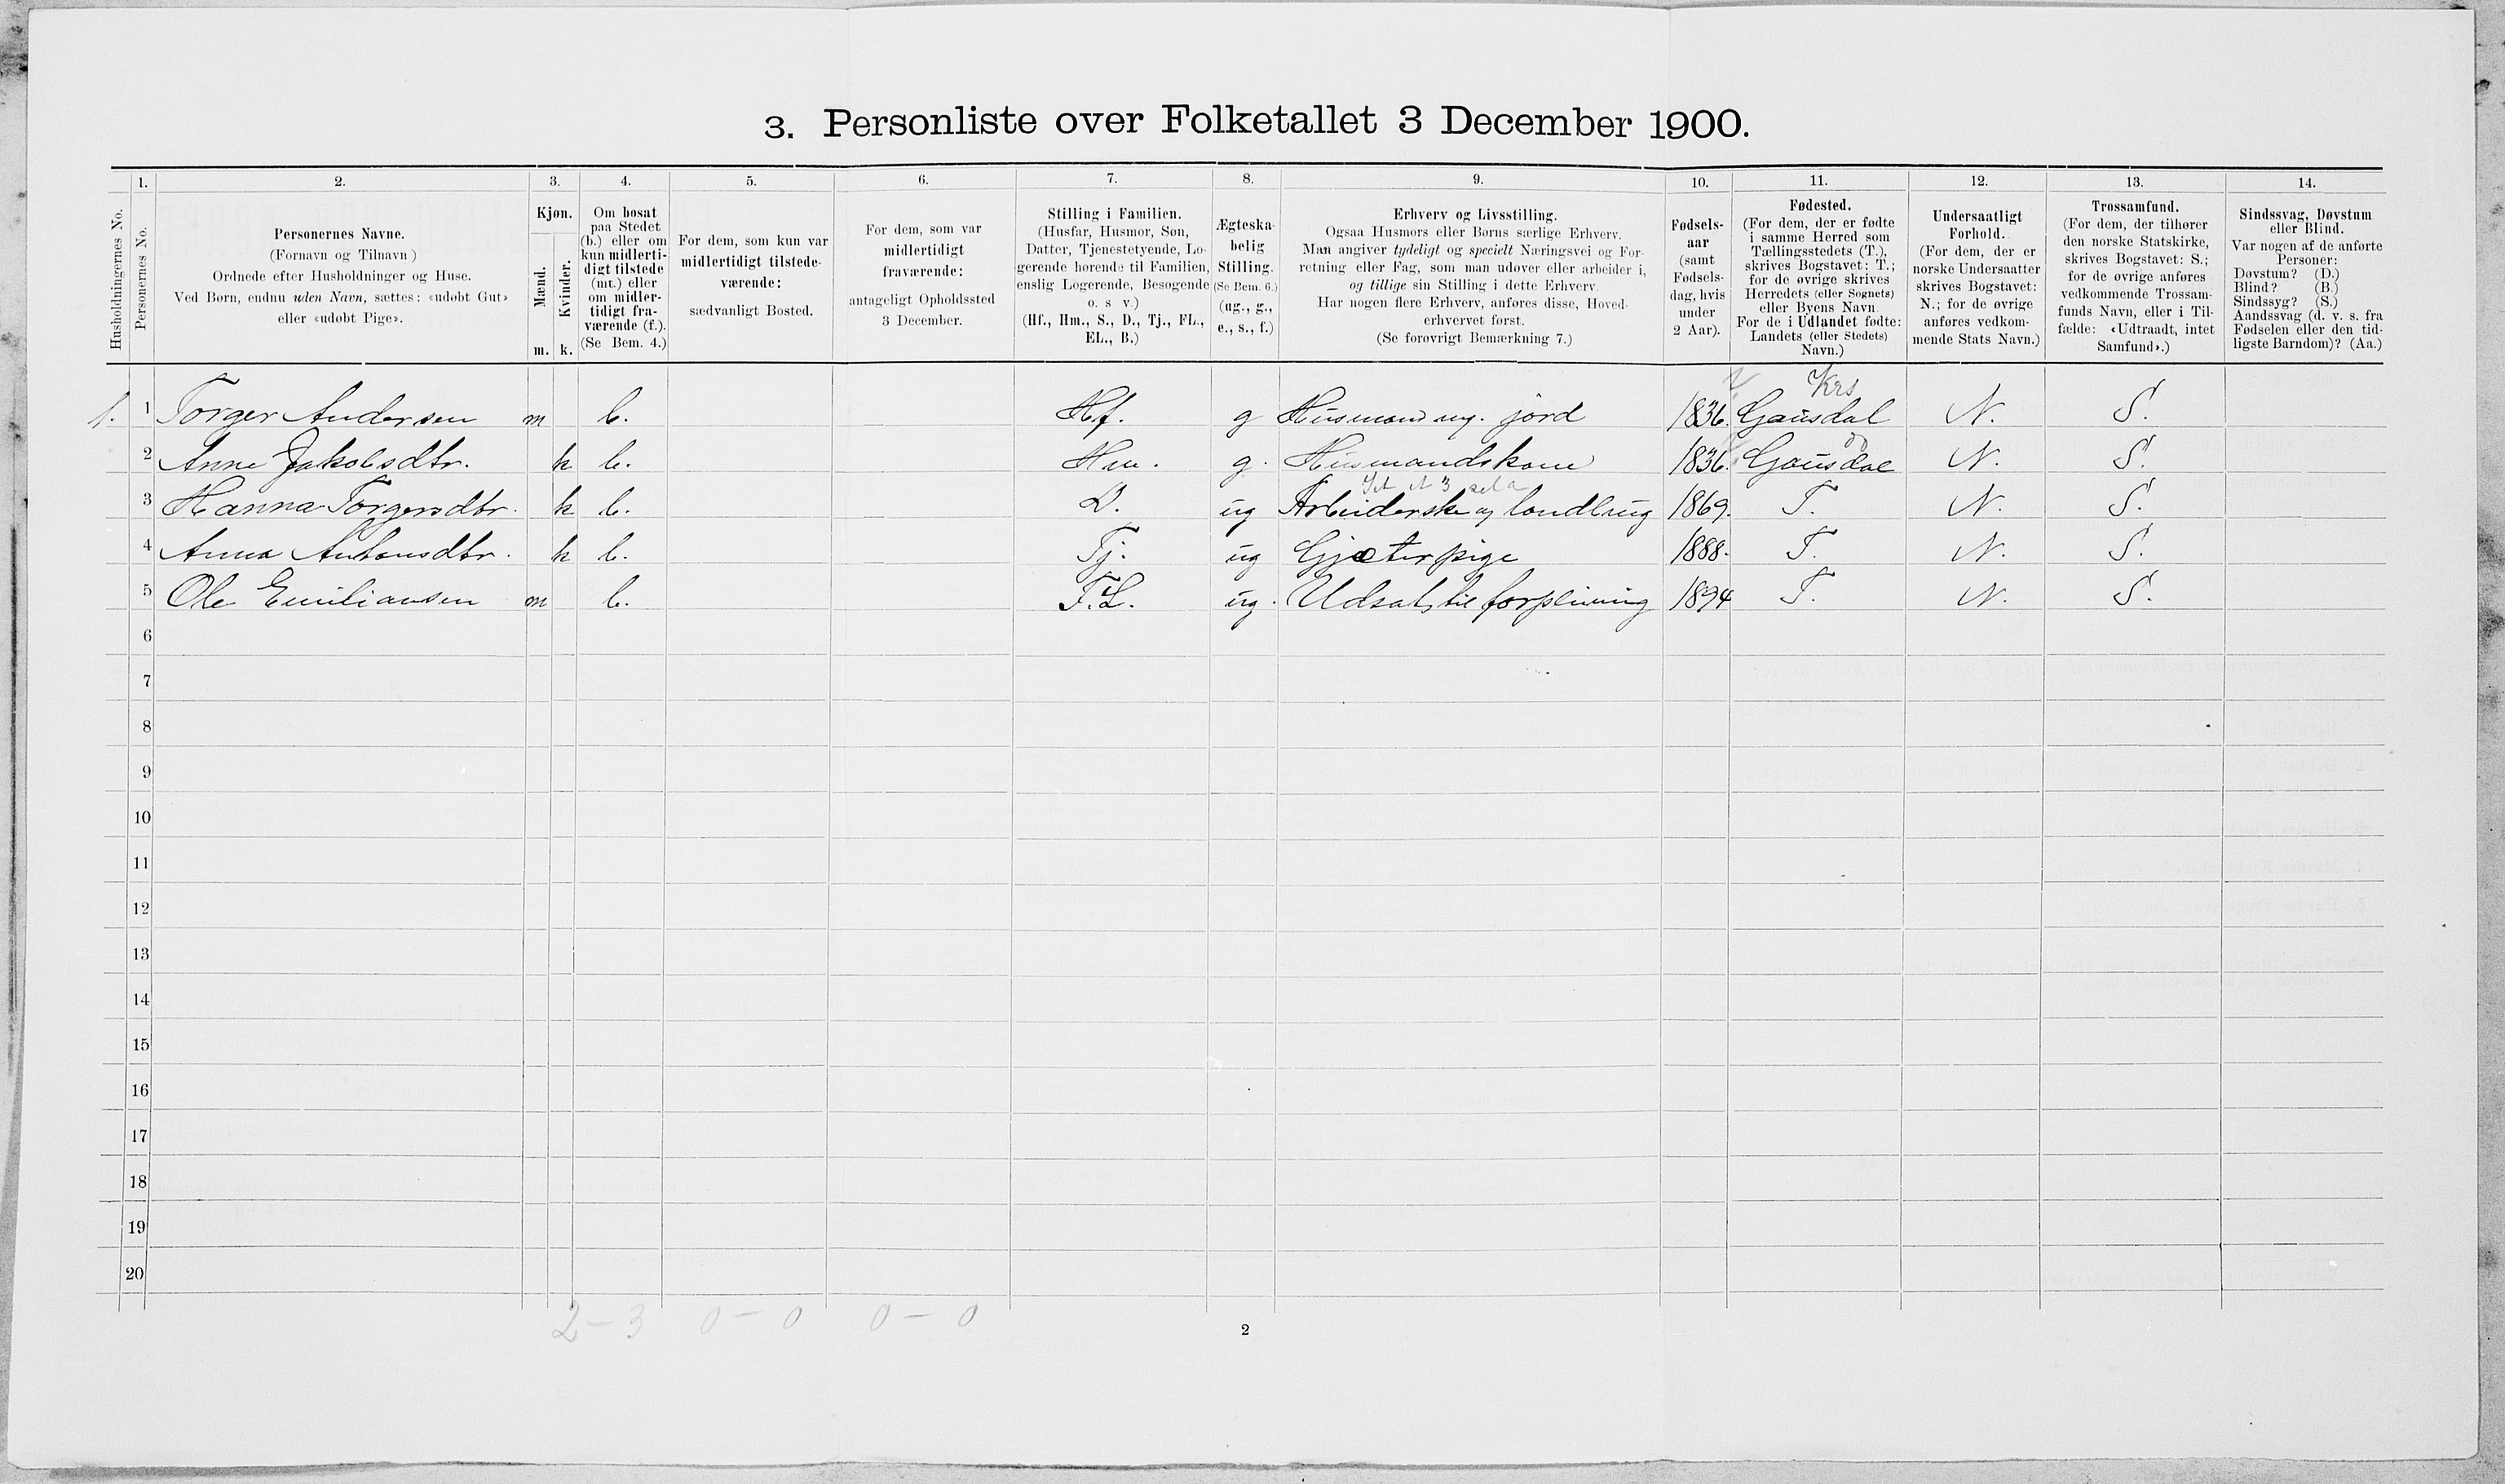 3. Personliste over Folketallet 3 December 1900.
1. 2. 3. 4. 5. 6. 7. 8. 9. 10. 11. 12. 13. 14.
Husholdningernes No.
Personernes No.
Personernes Navne.
(Fornavn og Tilnavn)
Ordnede efter Husholdninger og Huse.
Ved Børn, endnu uden Navn, sættes: «udøbt Gut»
eller «udøbt Pige».
Kjøn.
Mænd.
Kvinder.
m. k.
Om bosat
paa Stedet
(b.) eller om
kun midlerti-
digt tilstede
(mt.) eller
om midler-
tidigt fra-
værende (f.).
(Se Bem. 4.)
For dem, som kun var
midlertidigt tilstede-
værende:
sædvanligt Bosted.
For dem, som var
midlertidigt
fraværende:
antageligt Opholdssted
3 December.
Stilling i Familien.
(Husfar, Husmor, Søn,
Datter, Tjenestetyende, Lo-
gerende hørende til Familien,
enslig Logerende, Besøgende
o. s v.)
(Hf., Hm., S., D., Tj., FL.,
EL., B.)
Ægteska-
belig
Stilling.
(Se Bem. 6.)
(ug., g.,
e., s., f.)
Erhverv og Livsstilling.
Ogsaa Husmors eller Børns særlige Erhverv.
Man angiver tydeligt og specielt Næringsvei og For-
retning eller Fag, som man udøver eller arbeider i,
og tillige sin Stilling i dette Erhverv.
Har nogen flere Erhverv, anføres disse, Hoved-
erhvervet først.
(Se forøvrigt Bemærkning 7.)
Fødsels-
aar
(samt
Fødsels-
dag, hvis
under
2 Aar).
Fødested.
(For dem, der er fødte
i samme Herred som
Tællingsstedets (T.),
skrives Bogstavet: T.;
for de øvrige skrives
Herredets (eller Sognets)
eller Byens Navn.
For de i Udlandet fødte:
Landets (eller Stedets)
Navn.)
Undersaatligt
Forhold.
(For dem, der er
norske Undersaatter
skrives Bogstavet:
N.; for de øvrige
anføres vedkom-
mende Stats Navn.)
Trossamfund.
(For dem, der tilhører
den norske Statskirke,
skrives Bogstavet: S.;
for de øvrige anføres
vedkommende Trossam-
funds Navn, eller i Til-
fælde: «Udtraadt, intet
Samfund».)
Sindssvag, Døvstum
eller Blind.
Var nogen af de anførte
Personer:
Døvstum? (D.)
Blind? (B.)
Sindssyg? (S.)
Aandssvag (d. v. s. fra
Fødselen eller den tid-
ligste Barndom)? (Aa.)
Krs
1. 1 Torger Andersen m b. Hf. g Husmand m. jord 1836. Gausdal N. S.
do
2 Anne Jakobsdtr. k b. Hm. g. Husmandskone 1836. Gausdal N. S.
3 Hanna Torgersdtr. k b. D. ug Arbeiderske og landbrug 1869. T. N. S.
4 Anna Antonsdtr. k b. Tj. ug Gjæterpige 1888. T. N. S.
5 Ole Emiliansen m b. F.L. ug. Udsat til forpleining 1894 T. N. S.
6
7
8
9
10
11
12
13
14
15
16
17
18
19
20
2 – 3 0 – 0 0 – 0
2